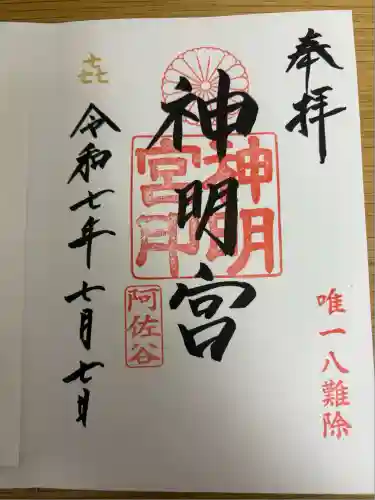 奉拝
唯一八難除
神明宮
神明宮印
阿佐谷
㐂
令和七年七月七日